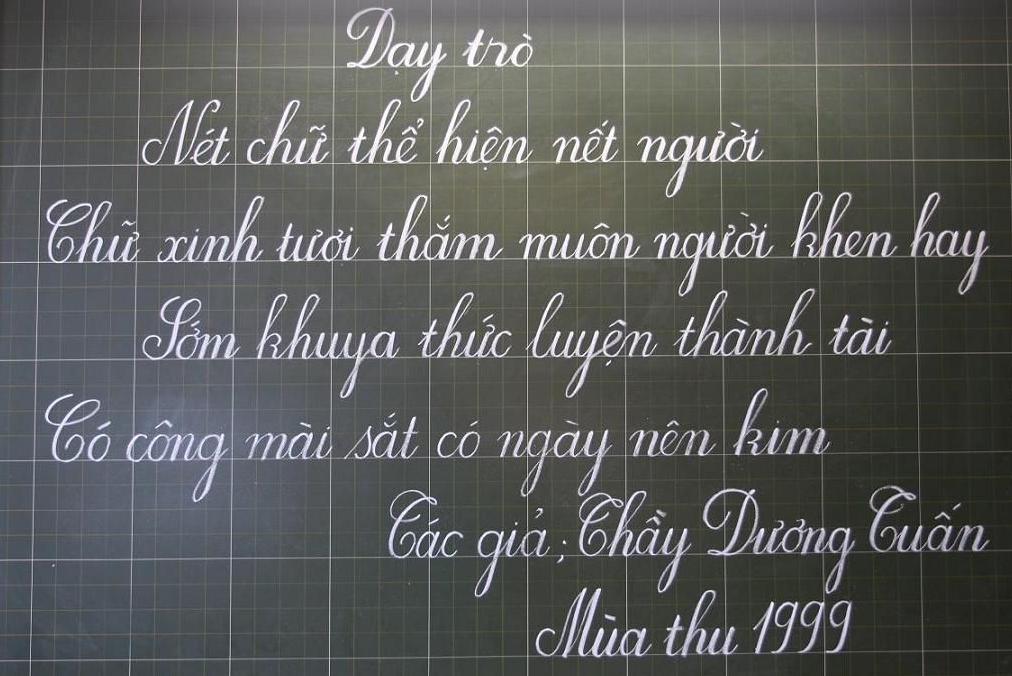 Dạy trò
Nét chữ thể hiện nết người
Chữ xinh tươi thắm muôn người khen hay
Sớm khuya thức luyện thành tài
Có công mài sắt có ngày nên kim
Tác giả; Thầy Dương Tuấn
Mùa thu 1999